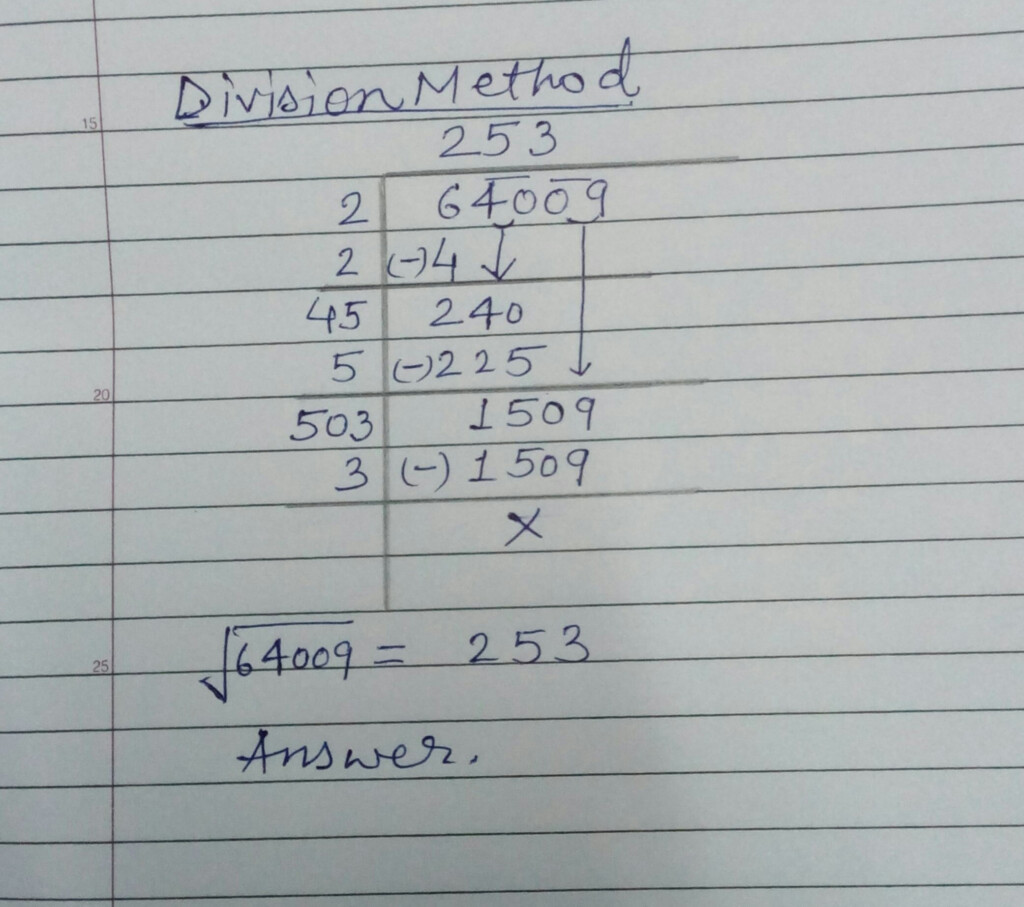 Division Method
15
253
2 64009
2 (-)4
45 240
5 (-)225
20
503 1509
3 (-) 1509
×
√64009 = 253
25
Answer.